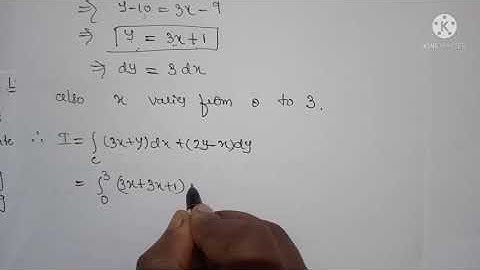 ⇒ y-10 = 3x-9
⇒ y = 3x+1
⇒ dy = 3dx
also x varies from 0 to 3.
∴ I = ∫c (3x+y)dx + (2y-x)dy
= ∫₀³ (3x+3x+1)